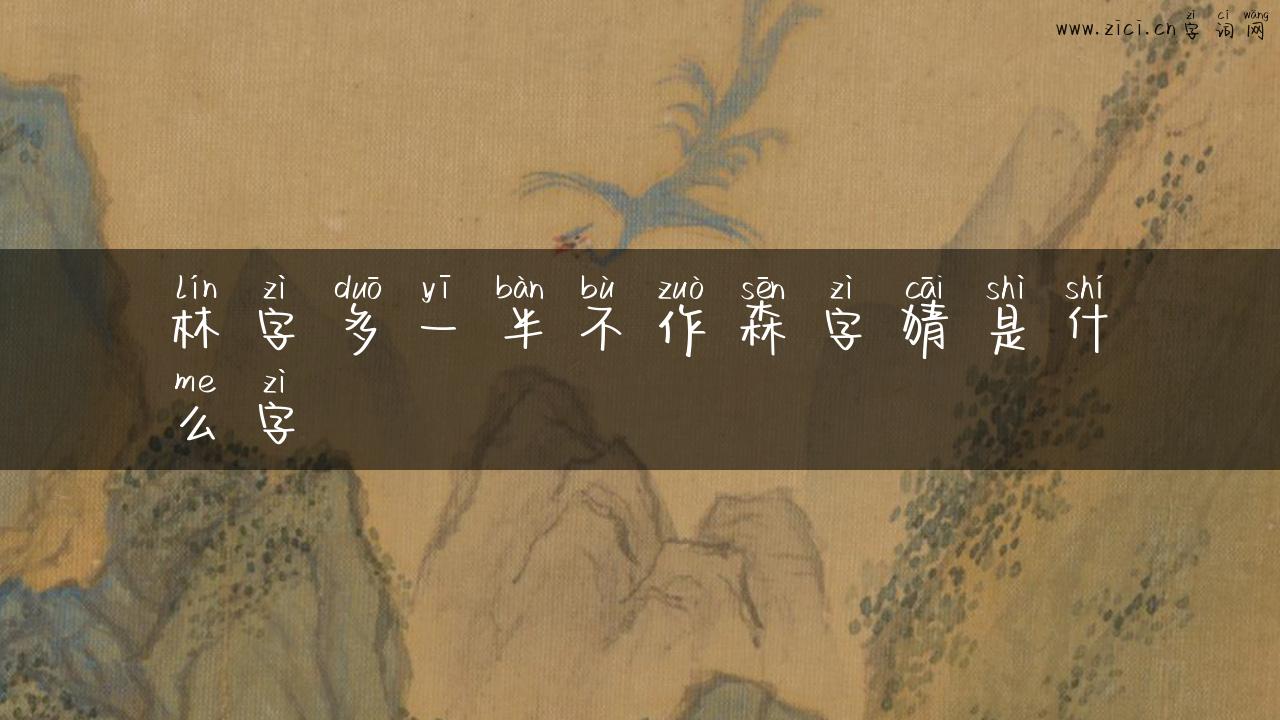 zì cí wǎng
www.zici.cn字词网
lín zì duō yī bàn bù zuò sēn zì cāi shì shí
林字多一半不作森字猜是什
me zì
么字